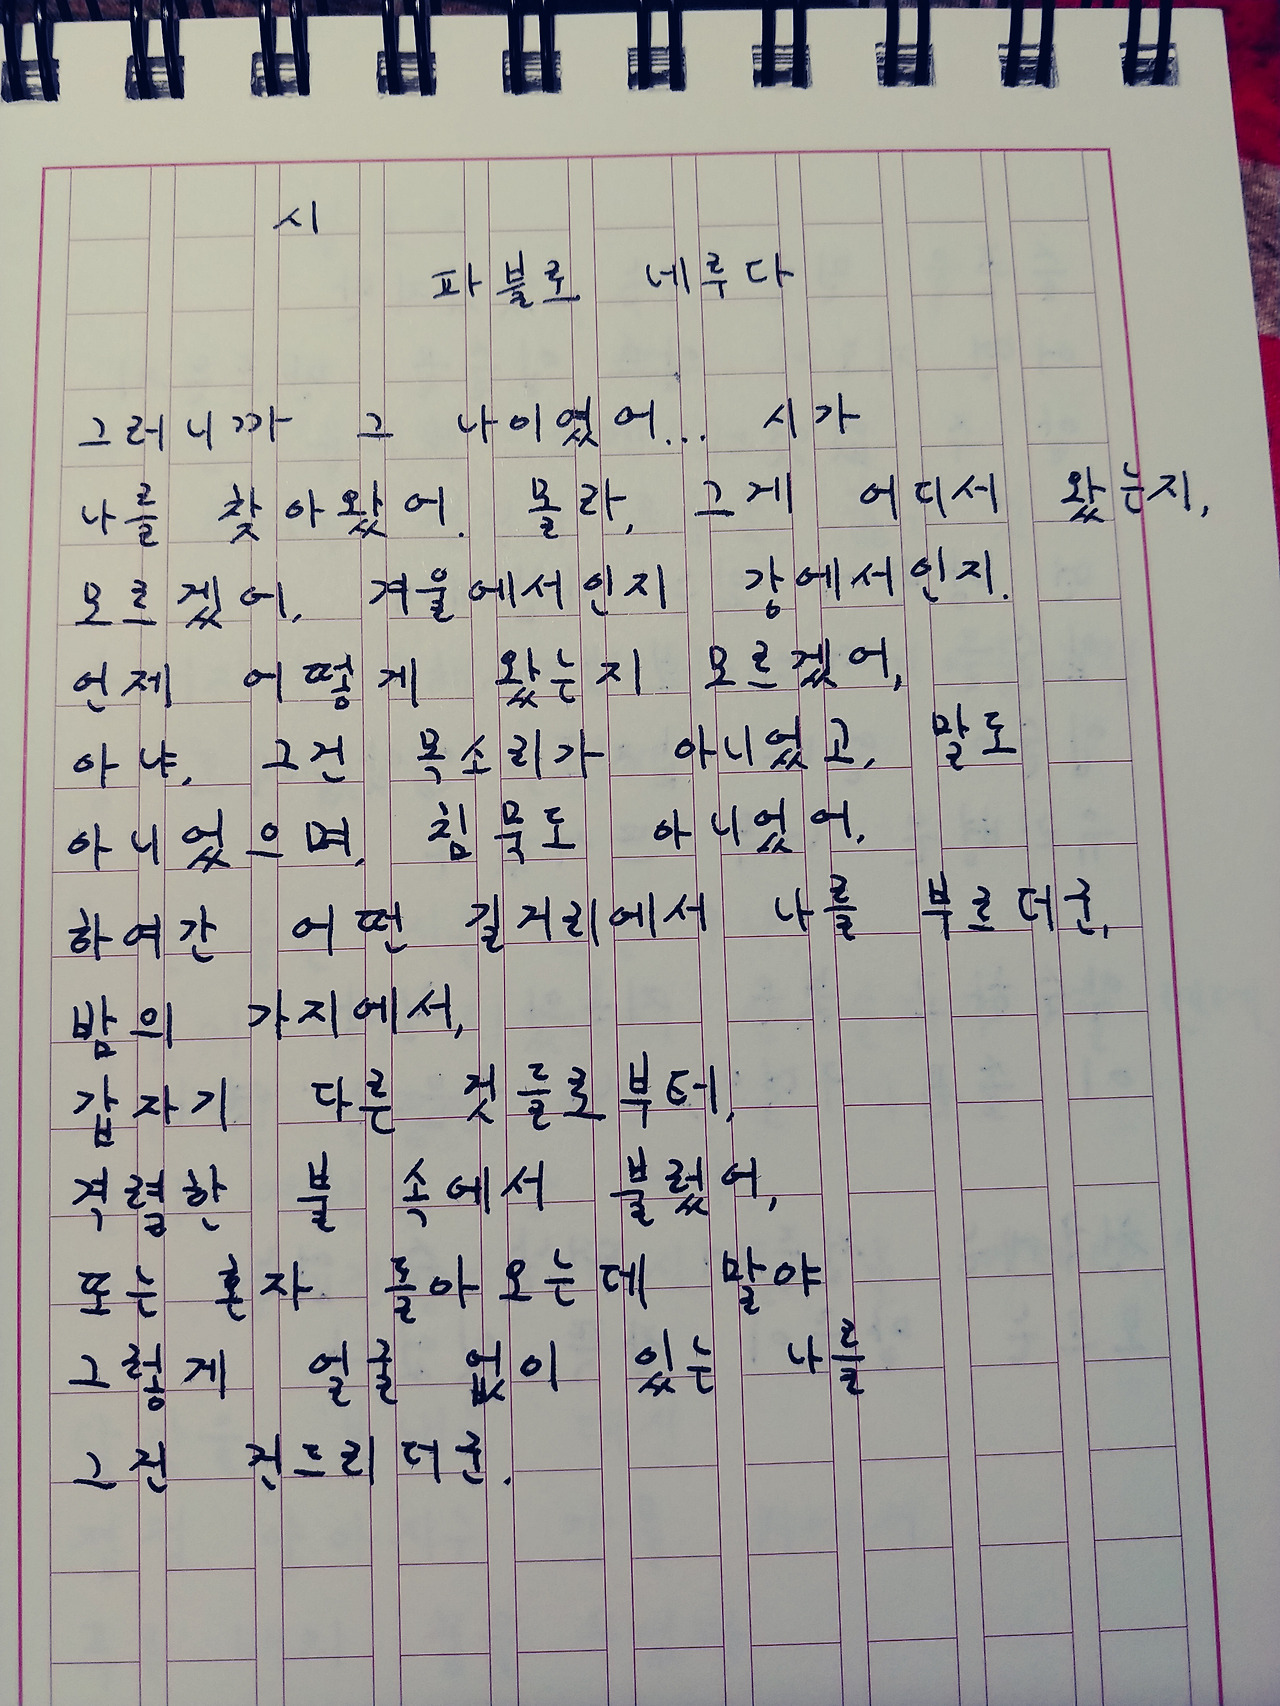 시
파블로 네루다
그러니까 그 나이였어... 시가
나를 찾아왔어. 몰라, 그게 어디서 왔는지,
모르겠어, 겨울에서인지 강에서인지.
언제 어떻게 왔는지 모르겠어,
아냐, 그건 목소리가 아니었고, 말도
아니었으며, 침묵도 아니었어,
하여간 어떤 길거리에서 나를 부르더군,
밤의 가지에서,
갑자기 다른 것들로부터,
격렬한 불 속에서 불렀어,
또는 혼자 돌아오는데 말야
그렇게 얼굴 없이 있는 나를
그건 건드리더군.